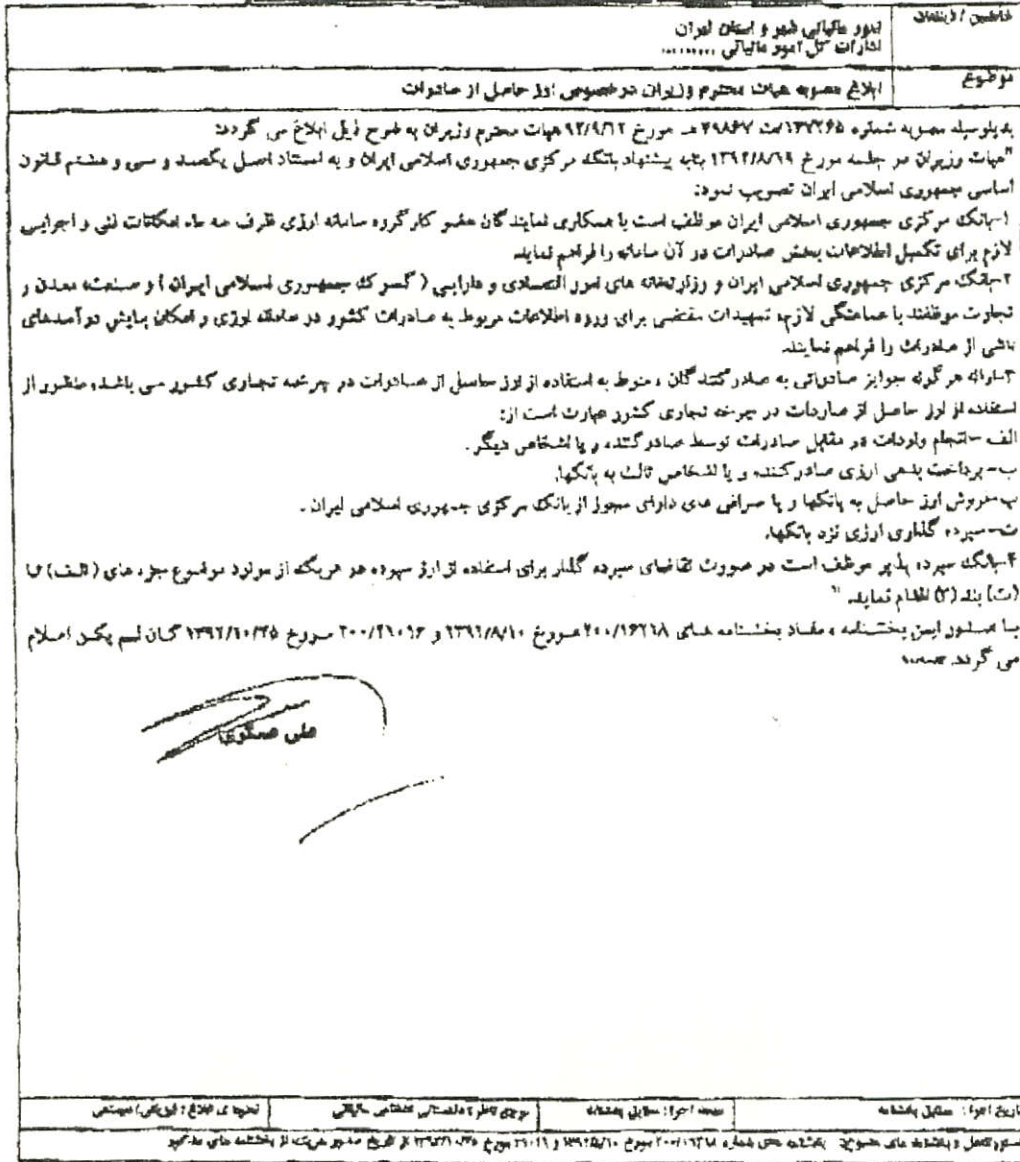 مخاطبین / ذینفعان
امور مالیاتی شهر و استان تهران
ادارات کل امور مالیاتی ..........
موضوع
ابلاغ مصوبه هیات محترم وزیران درخصوص ارز حاصل از صادرات
بدینوسیله مصوبه شماره ۱۳۷۲۶۵/ت ۴۹۸۶۷ هـ مورخ ۹۲/۹/۱۲ هیات محترم وزیران به شرح ذیل ابلاغ می گردد:
"هیات وزیران در جلسه مورخ ۱۳۹۲/۸/۱۹ بنابه پیشنهاد بانک مرکزی جمهوری اسلامی ایران و به استناد اصل یکصد و سی و هشتم قانون
اساسی جمهوری اسلامی ایران تصویب نمود:
۱-بانک مرکزی جمهوری اسلامی ایران موظف است با همکاری نمایندگان عضو کارگروه سامانه ارزی ظرف سه ماه امکانات فنی و اجرایی
لازم برای تکمیل اطلاعات بخش صادرات در آن سامانه را فراهم نماید.
۲-بانک مرکزی جمهوری اسلامی ایران و وزارتخانه های امور اقتصادی و دارایی ( گمرک جمهوری اسلامی ایران ) و صنعت، معدن و
تجارت موظفند با هماهنگی لازم، تمهیدات مقتضی برای ورود اطلاعات مربوط به صادرات کشور در سامانه ارزی و امکان پایش درآمدهای
ناشی از صادرات را فراهم نمایند.
۳-ارائه هر گونه جوایز صادراتی به صادرکنندگان ، منوط به استفاده از ارز حاصل از صادرات در چرخه تجاری کشور می باشد، منظور از
استفاده از ارز حاصل از صاردات در چرخه تجاری کشور عبارت است از:
الف -انجام واردات در مقابل صادرات توسط صادرکننده و یا اشخاص دیگر .
ب- پرداخت بدهی ارزی صادرکننده و یا اشخاص ثالث به بانکها.
پ-فروش ارز حاصل به بانکها و یا صرافی های دارای مجوز از بانک مرکزی جمهوری اسلامی ایران .
ت-سپرده گذاری ارزی نزد بانکها.
۴-بانک سپرده پذیر موظف است در صورت تقاضای سپرده گذار برای استفاده از ارز سپرده در هریک از موارد موضوع جزء های (الف) تا
(ت) بند (۳) اقدام نماید. "
با صدور این بخشنامه ، مفاد بخشنامه های ۲۰۰/۱۶۲۱۸ مورخ ۱۳۹۲/۸/۱۰ و ۲۰۰/۲۱۰۱۶ مورخ ۱۳۹۲/۱۰/۲۵ کان لم یکن اعلام
می گردد.
علی عسکری
تاریخ اجرا: مطابق بخشنامه
مدت اجرا: مطابق بخشنامه
مرجع ناظر: دادستانی انتظامی مالیاتی
نحوه ی ابلاغ: فیزیکی/سیستمی